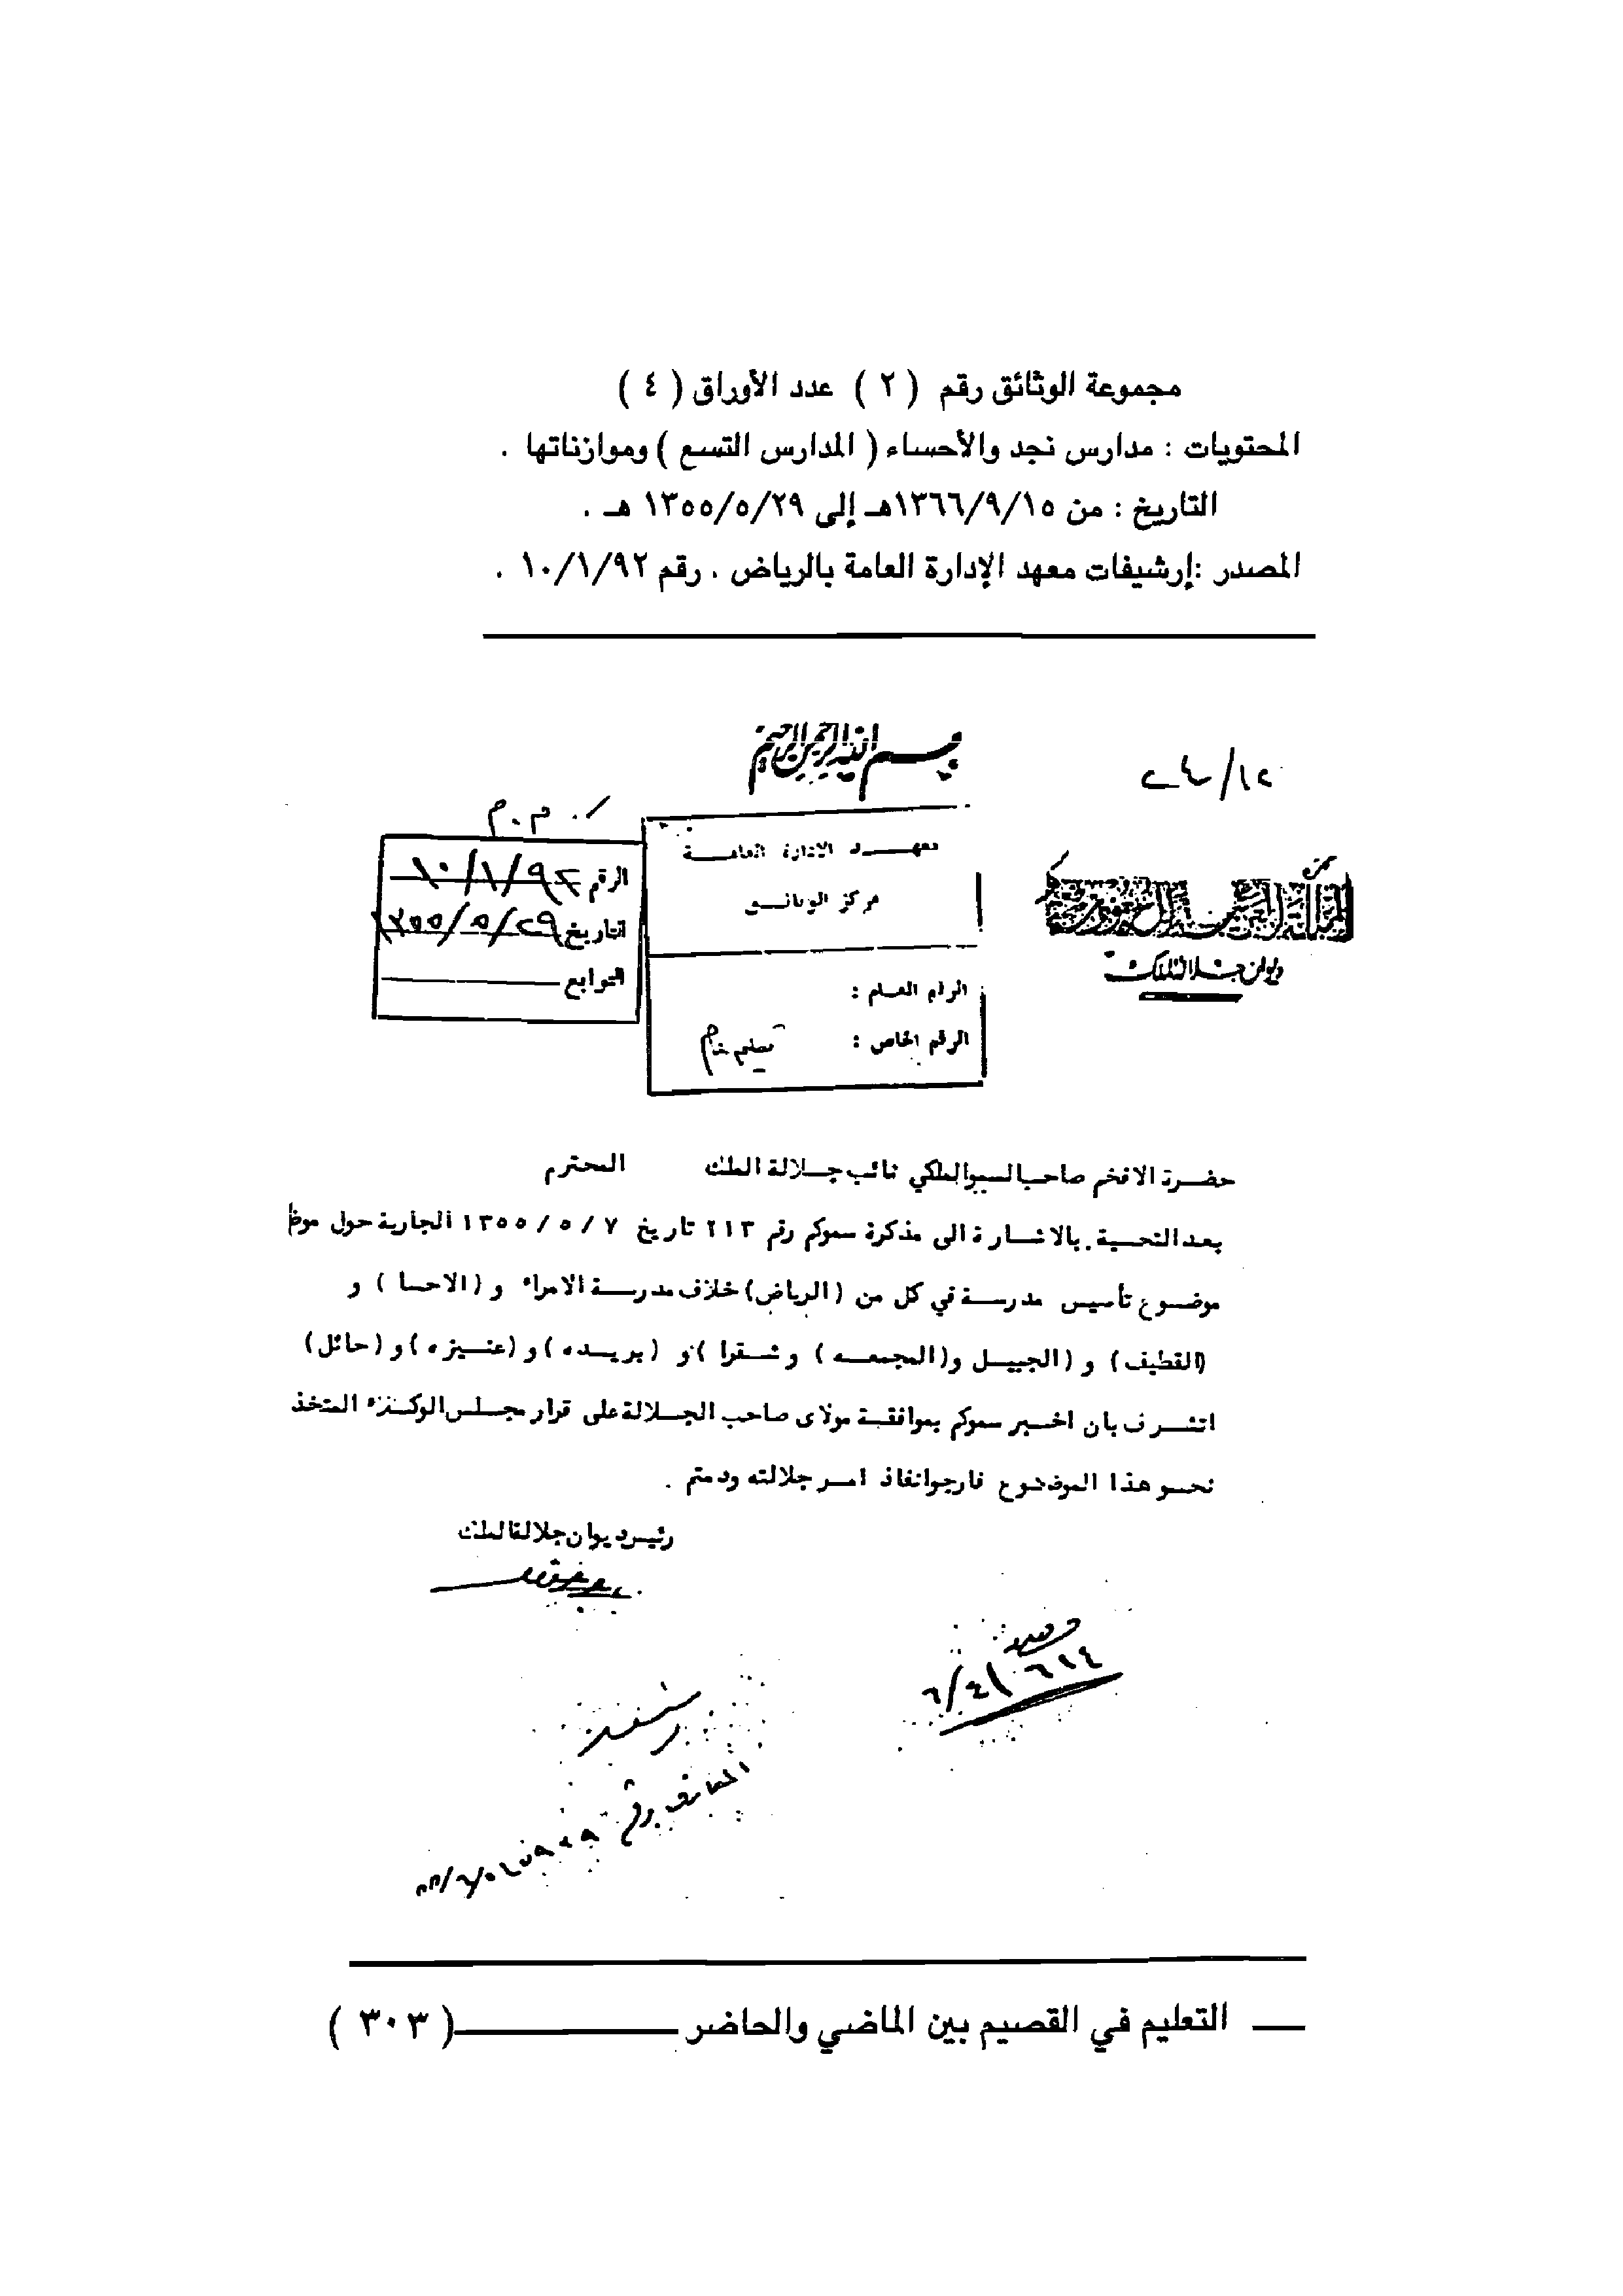 مجموعة الوثائق رقم ( ٢ ) عدد الأوراق ( ٤ )
المحتويات : مدارس نجد والأحساء ( المدارس التسع ) وموازناتها .
التاريخ : من ١٣٦٦/٩/١٥هـ إلى ١٣٥٥/٥/٢٩ هـ .
المصدر :إرشيفات معهد الإدارة العامة بالرياض . رقم ١٠/١/٩٢ .
بسم الله الرحمن الرحيم
المملكة العربية السعودية
ديوان جلالة الملك
معهد الادارة العامة
مركز الوثائق
الرقم العام :
الرقم الخاص :
الرقم ١٠/١/٩٢
التاريخ ١٣٥٥/٥/٢٩
التوابع
حضرة الافخم صاحب السمو الملكي نائب جلالة الملك المحترم
بعد التحية. بالاشارة الى مذكرة سموكم رقم ٢١٣ تاريخ ٧ / ٥ / ١٣٥٥ الجارية حول موظ
موضوع تأسيس مدرسة في كل من (الرياض) خلاف مدرسة الامراء و (الاحسا ) و
(القطيف) و (الجبيل و(المجمعه ) و شقرا ) و (بريده ) و (عنيزه ) و (حائل)
اتشرف بان اخبر سموكم بموافقة مولاى صاحب الجلالة على قرار مجلس الوكلاء المتخذ
نحو هذا الموضوع فارجو انفاذ امر جلالته ودمتم .
رئيس ديوان جلالة الملك
المعارف برقم
التعليم في القصيم بين الماضي والحاضر ( ٣٠٣ )